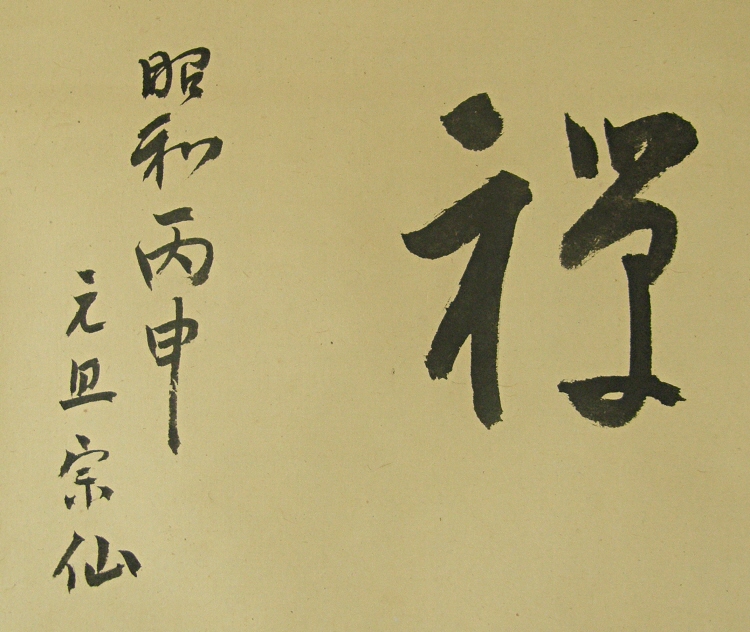 禅
昭和丙申
元旦宗仙